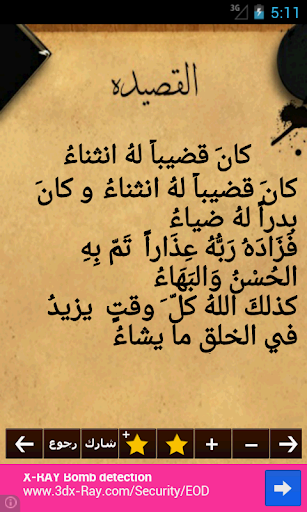 3G 5:11
القصيده
كانَ قضيباً لهُ انثناءُ
كانَ قضيباً لهُ انثناءُ و كانَ
بدراً لهُ ضياءُ
فُزَادَهُ رَبُّهُ عِذَاراً تَمّ بِهِ
الحُسْنُ وَالبَهَاءُ
كذلكَ اللهُ كلّ َ وقتٍ يزيدُ
في الخلق ما يشاءُ
رجوع شارك + + -
X-RAY Bomb detection
www.3dx-Ray.com/Security/EOD